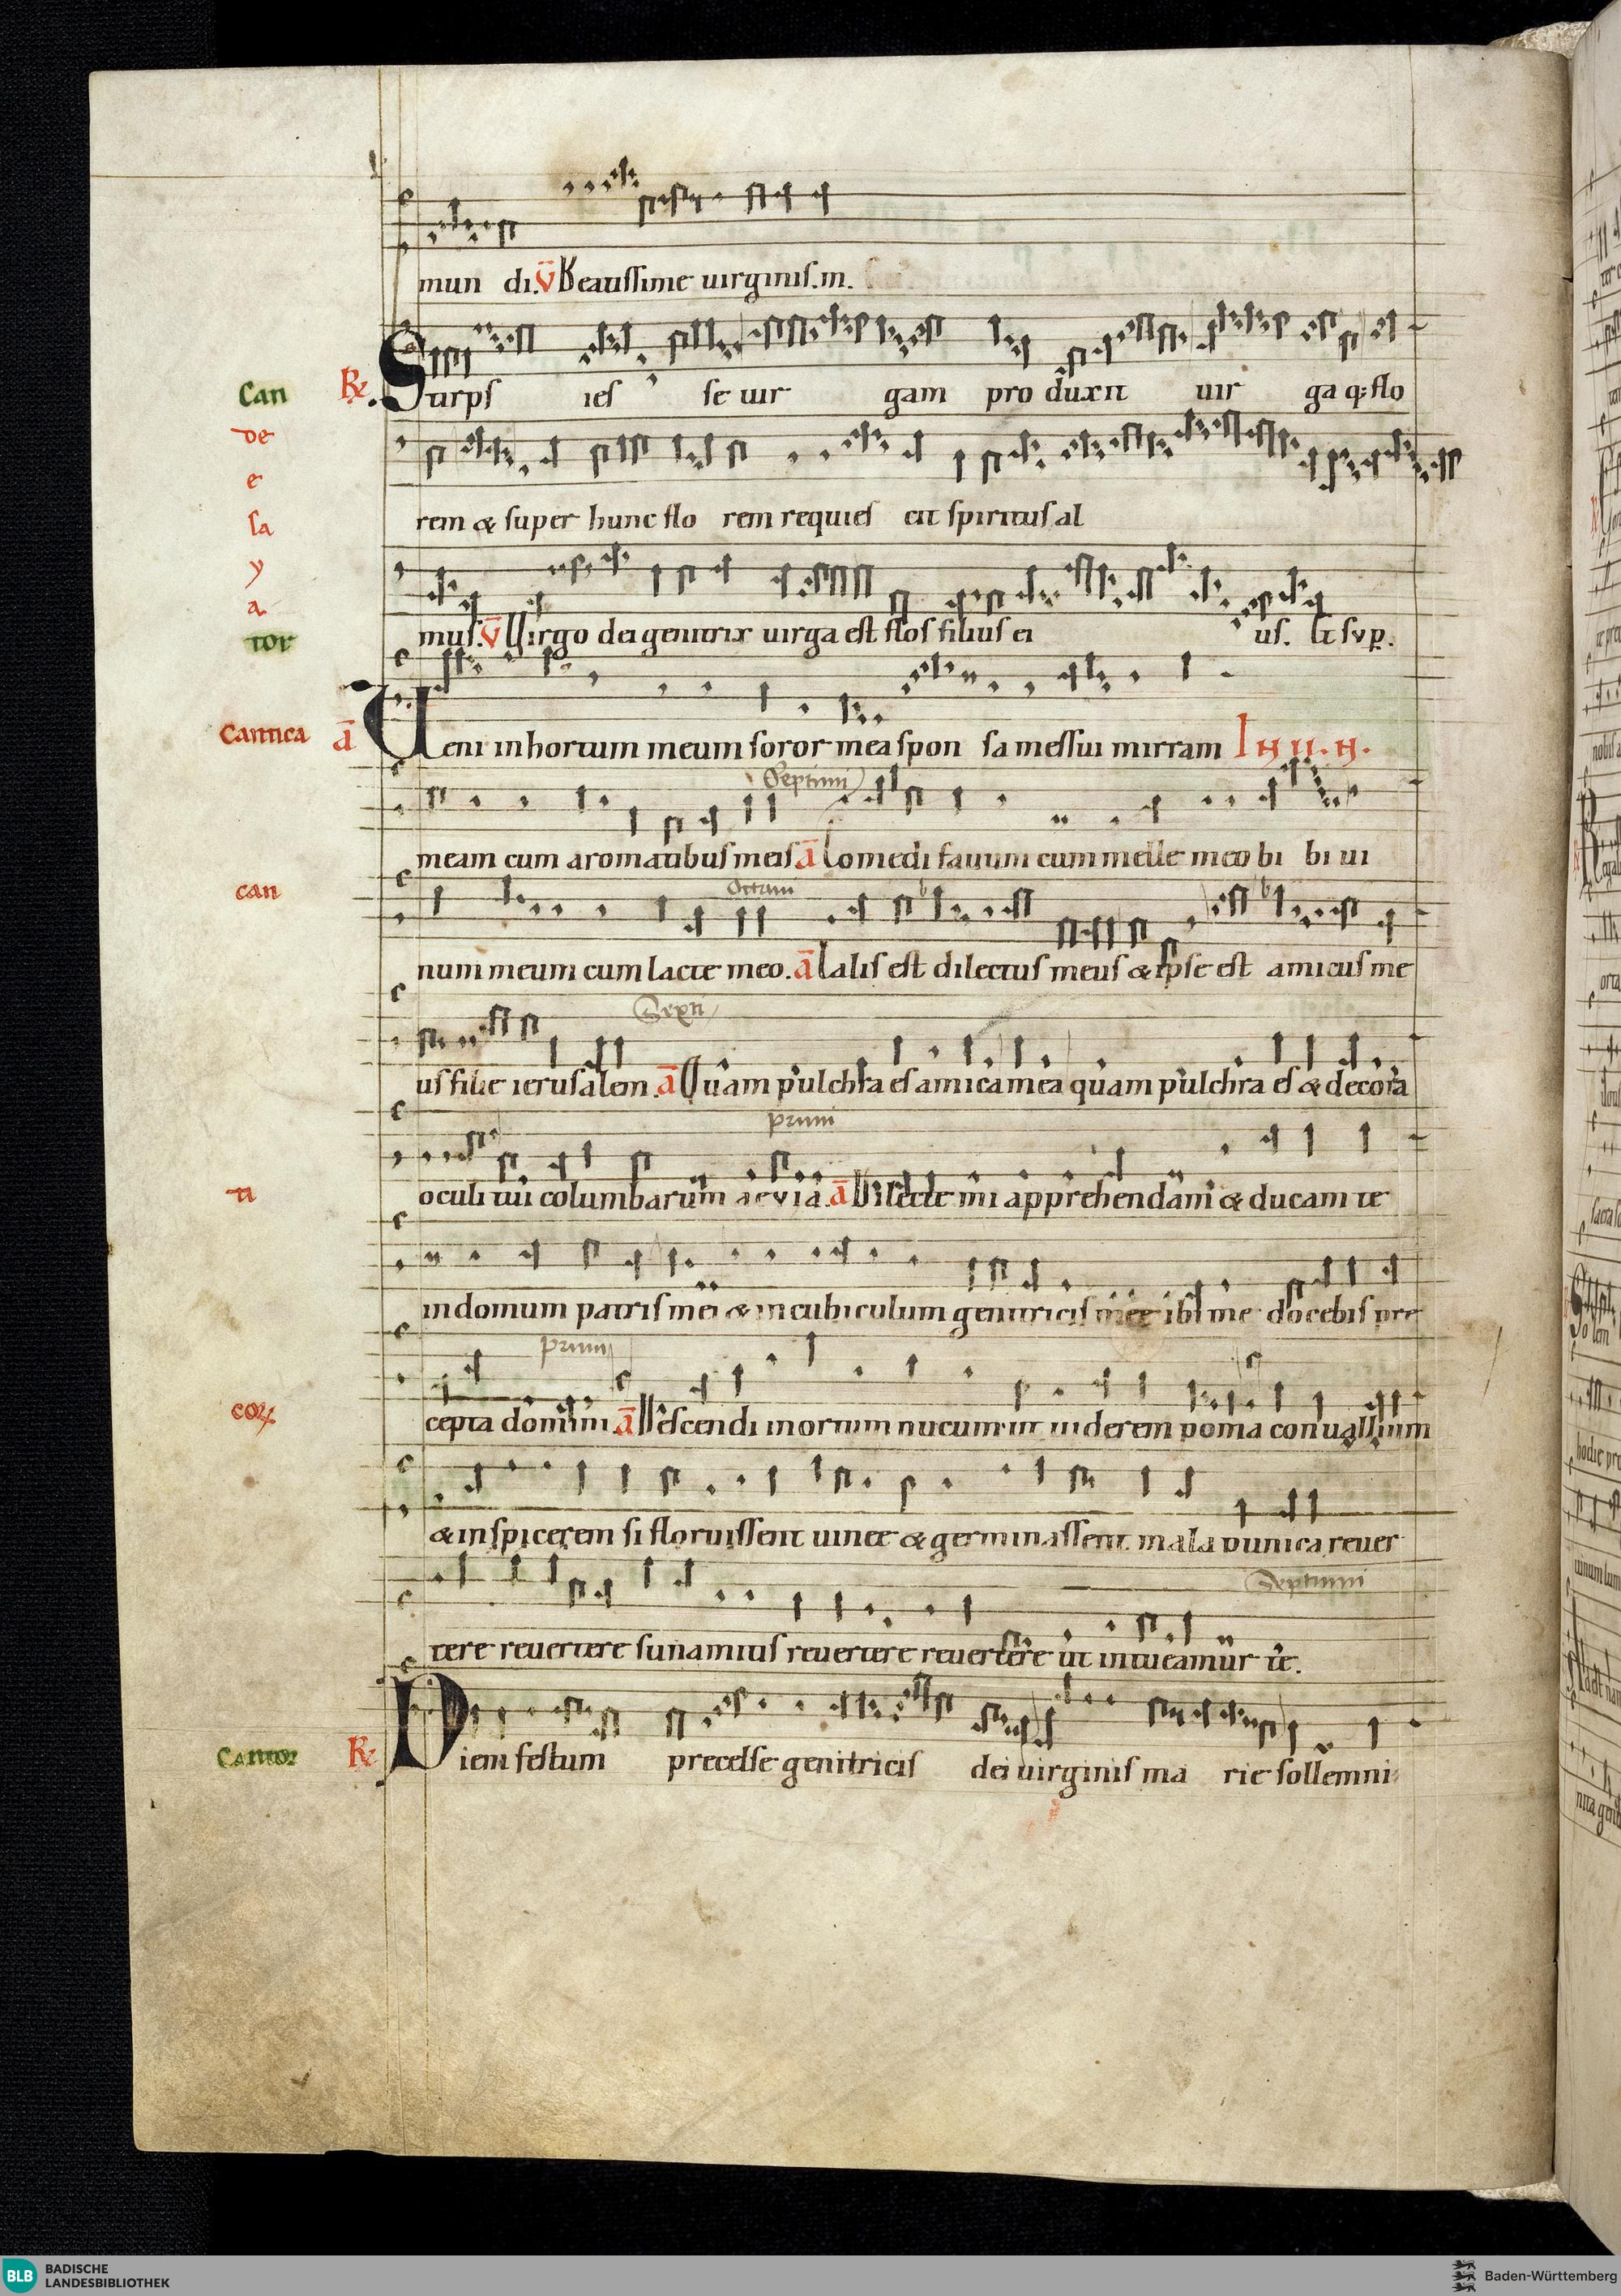 mun di. V̄ Beatissime uirginis. in.
Can R̷ Stirps ies se uir gam pro duxit uir ga q; flo
de
e
sa
y
a
tor
rem & super hunc flo rem requies cit spiritus al
mus. V̄ Virgo dei genitrix uirga est flos filius ei us. Et sup.
Cantica ā Veni in hortum meum soror mea spon sa messui mirram IN II. N.
Septimi
meam cum aromatibus meis ā Comedi fauum cum melle meo bi bi ui
can
Octaui
num meum cum lacte meo. ā Talis est dilectus meus & ipse est amicus me
Sexti
us filie ierusalem. ā Quam pulchra es amica mea quam pulchra es & decora
primi
ti
oculi tui columbarum aevia. ā Dilecte mi apprehendam & ducam te
in domum patris mei & in cubiculum genitricis mee ibi me docebis pre
primi
coꝝ
cepta domini ā Descendi in ortum nucum ut uiderem poma conuallium
& inspicerem si floruissent uinee & germinassent mala punica reuer
Septimi
tere reuertere sunamitis reuertere reuertere ut intueamur te.
Cantor R̷ Diem festum precelse genitricis dei uirginis ma rie sollemni
BLB BADISCHE
LANDESBIBLIOTHEK
Baden-Württemberg